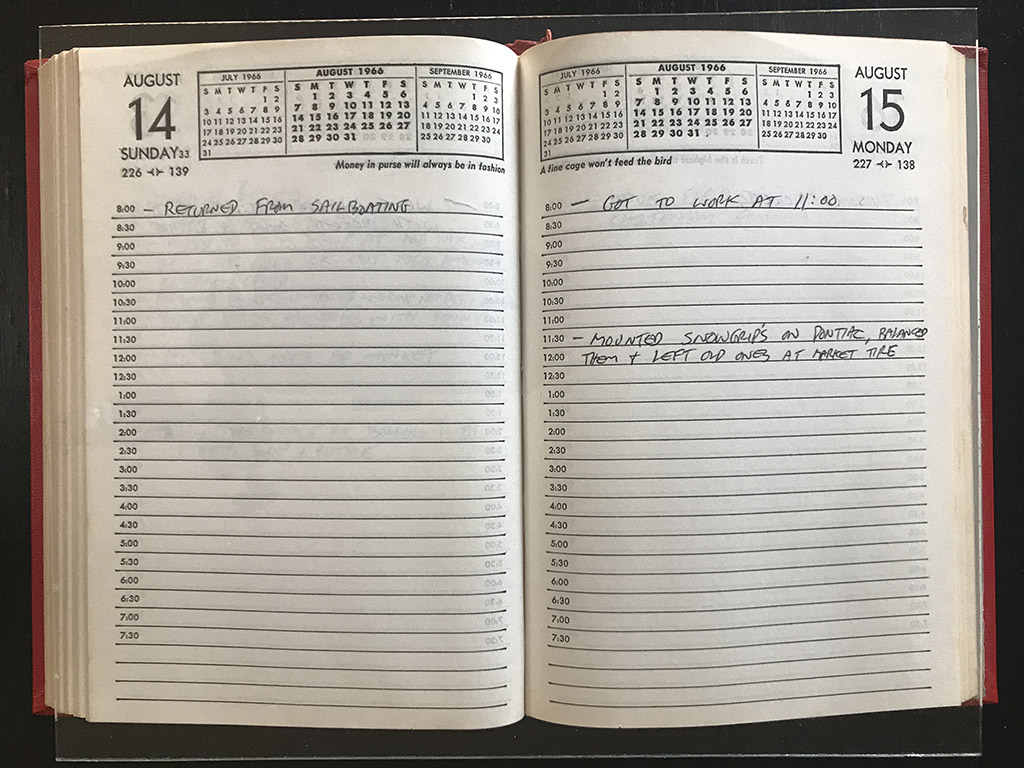 AUGUST
14
SUNDAY 33
226 -<>- 139
JULY 1966
S M T W T F S
1 2
3 4 5 6 7 8 9
10 11 12 13 14 15 16
17 18 19 20 21 22 23
24 25 26 27 28 29 30
31
AUGUST 1966
S M T W T F S
1 2 3 4 5 6
7 8 9 10 11 12 13
14 15 16 17 18 19 20
21 22 23 24 25 26 27
28 29 30 31
SEPTEMBER 1966
S M T W T F S
1 2 3
4 5 6 7 8 9 10
11 12 13 14 15 16 17
18 19 20 21 22 23 24
25 26 27 28 29 30
Money in purse will always be in fashion
8:00 – RETURNED FROM SAILBOATING
8:30
9:00
9:30
10:00
10:30
11:00
11:30
12:00
12:30
1:00
1:30
2:00
2:30
3:00
3:30
4:00
4:30
5:00
5:30
6:00
6:30
7:00
7:30
JULY 1966
S M T W T F S
1 2
3 4 5 6 7 8 9
10 11 12 13 14 15 16
17 18 19 20 21 22 23
24 25 26 27 28 29 30
31
AUGUST 1966
S M T W T F S
1 2 3 4 5 6
7 8 9 10 11 12 13
14 15 16 17 18 19 20
21 22 23 24 25 26 27
28 29 30 31
SEPTEMBER 1966
S M T W T F S
1 2 3
4 5 6 7 8 9 10
11 12 13 14 15 16 17
18 19 20 21 22 23 24
25 26 27 28 29 30
AUGUST
15
MONDAY
227 -<>- 138
A fine cage won't feed the bird
8:00 – GOT TO WORK AT 11:00
8:30
9:00
9:30
10:00
10:30
11:00
11:30 – MOUNTED SNOWGRIPS ON PONTIAC, BALANCED
12:00 THEM & LEFT OLD ONES AT MARKET TIRE
12:30
1:00
1:30
2:00
2:30
3:00
3:30
4:00
4:30
5:00
5:30
6:00
6:30
7:00
7:30